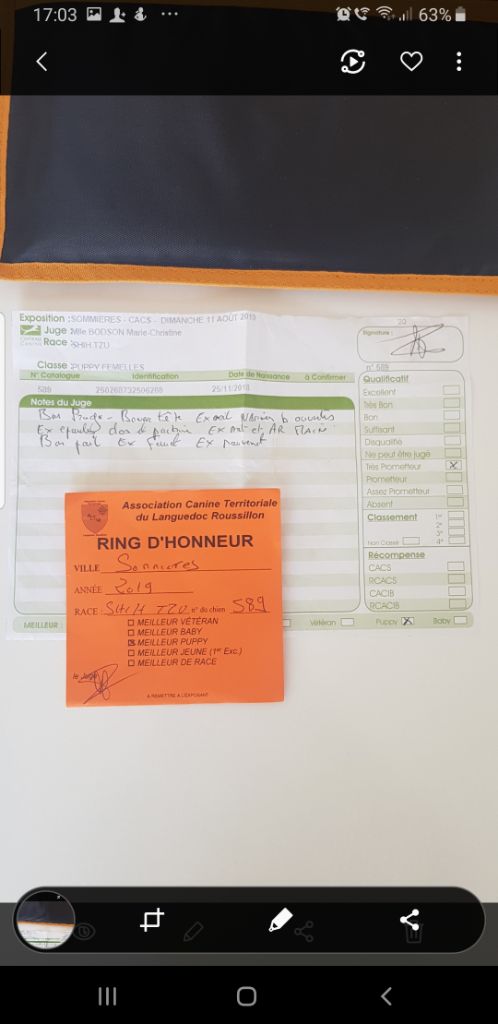 17:03
63%
Exposition : SOMMIERES - CACS - DIMANCHE 11 AOÛT 2019
20
Juge : Mlle BODSON Marie-Christine
Signature :
CENTRALE CANINE
Race : SHIH TZU
Classe : PUPPY FEMELLES
n° 589
N° Catalogue Identification Date de Naissance à Confirmer
589 250268732506268 25/11/2018
Notes du Juge
Bonne tête
Ex
Ex dos
Bon poil Ex Ex
Qualificatif
Excellent
Très Bon
Bon
Suffisant
Disqualifié
Ne peut être jugé
Très Prometteur X
Prometteur
Assez Prometteur
Absent
Classement 1er
2e
3e
Non Classé 4e
Récompense
CACS
RCACS
CACIB
RCACIB
MEILLEUR : Vétéran Puppy X Baby
Association Canine Territoriale
du Languedoc Roussillon
RING D'HONNEUR
VILLE Sommieres
ANNÉE 2019
RACE : SHIH TZU n° du chien 589
MEILLEUR VÉTÉRAN
MEILLEUR BABY
X MEILLEUR PUPPY
MEILLEUR JEUNE (1er Exc.)
MEILLEUR DE RACE
le Juge
A REMETTRE A L'EXPOSANT